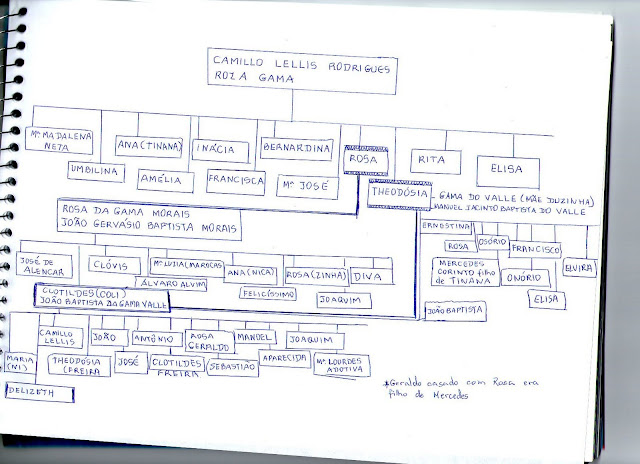 CAMILLO LELLIS RODRIGUES
ROZA GAMA
Mª MADALENA
NETA
UMBILINA
ANA(TINANA)
AMÉLIA
INÁCIA
FRANCISCA
BERNARDINA
Mª JOSÉ
ROSA
THEODÓSIA - GAMA DO VALLE (MÃE DUZINHA)
MANUEL JACINTO BAPTISTA DO VALLE
RITA
ELISA
ROSA DA GAMA MORAIS
JOÃO GERVÁSIO BAPTISTA MORAIS
ERNESTINA
ROSA
OSÓRIO
FRANCISCO
ELVIRA
MERCEDES
CORINTO filho
de TINANA
ONÓRIO
ELISA
JOÃO BAPTISTA
JOSÉ DE
ALENCAR
CLÓVIS
Mª LUIZA(MAROCAS)
ÁLVARO ALVIM
ANA(NICA)
FELICÍSSIMO
ROSA(ZINHA)
JOAQUIM
DIVA
CLOTILDES(COLI)
JOÃO BAPTISTA DA GAMA VALLE
MARIA
(NI)
CAMILLO
LELLIS
DELIZETH
THEODÓSIA
(FREIRA
JOÃO
JOSÉ
ANTÔNIO
CLOTILDES
FREIRA
ROSA
GERALDO
SEBASTIÃO
MANOEL
APARECIDA
JOAQUIM
Mª LOURDES
ADOTIVA
*Geraldo casado com Rosa era
filho de Mercedes